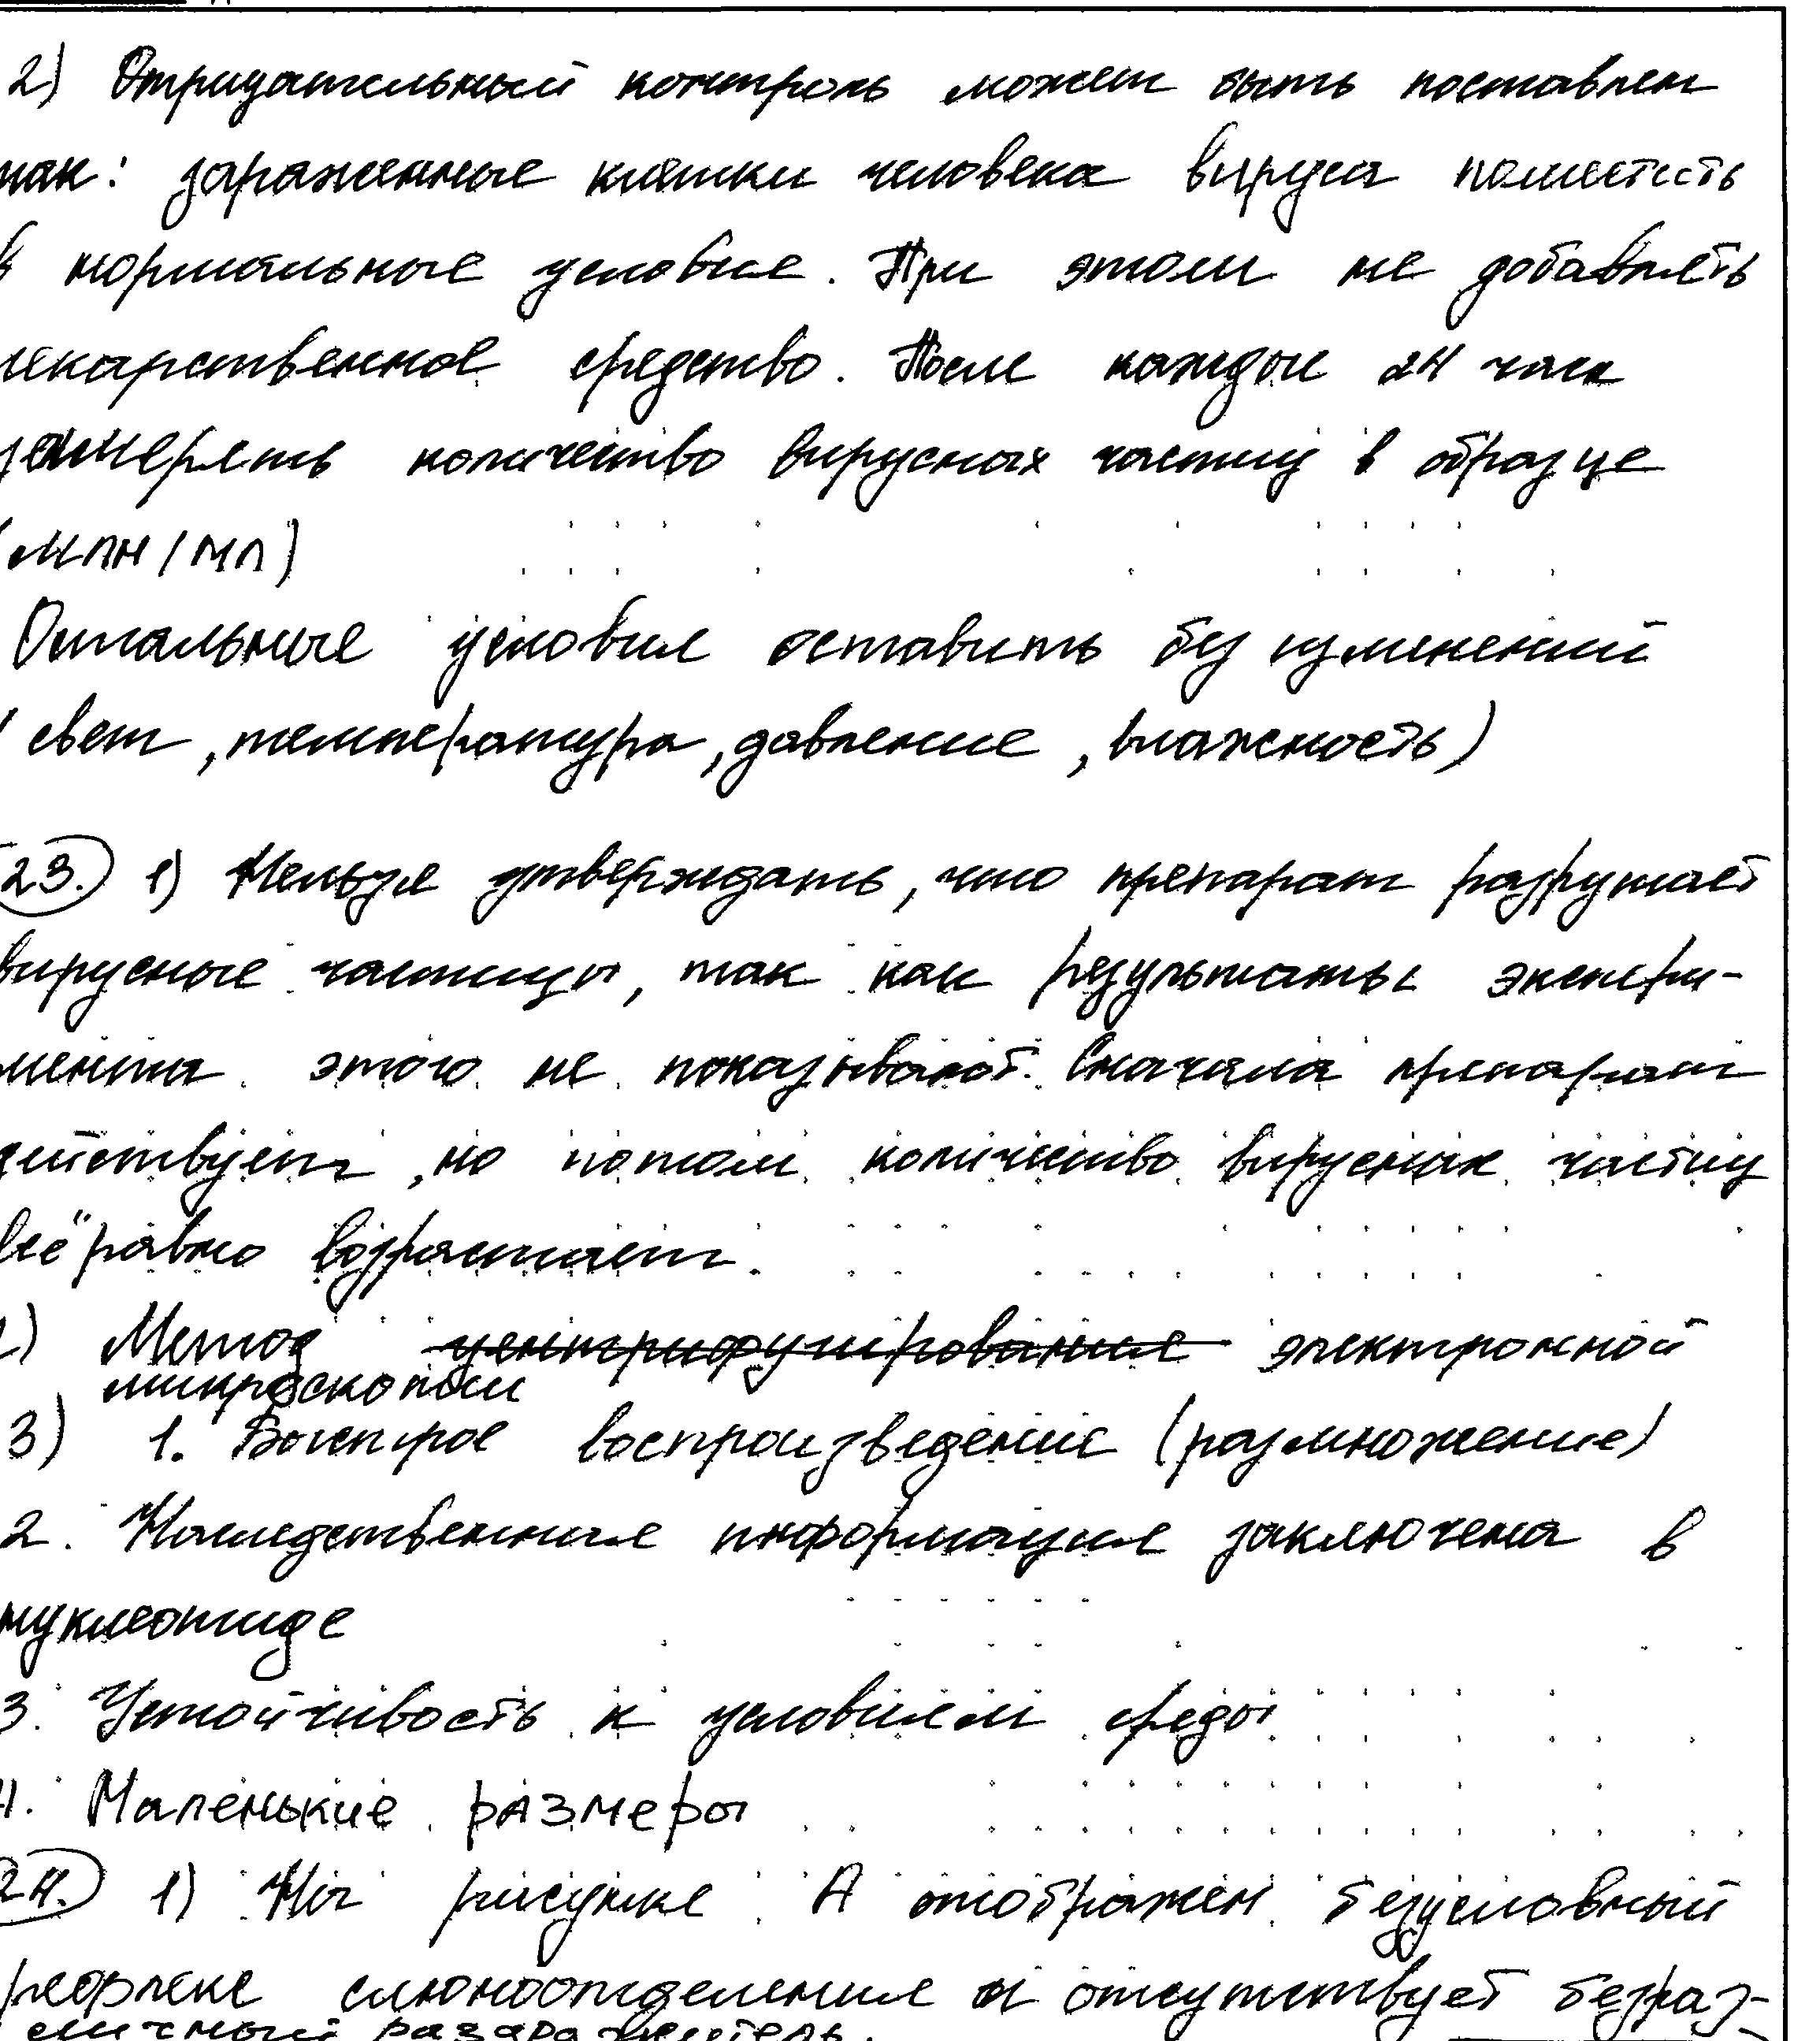 2) Отрицательный контроль может быть поставлен
так: зараженные клетки человека вируса поместить
в нормальные условие. При этом не добавлять
лекарственное средство. После каждые 24 часа
измерять количество вирусных частиц в образце
(млн/мл)
Остальные условия оставить без изменений
(свет, температура, давление, влажность)
23. 1) Нельзя утверждать, что препарат разрушает
вирусные частицы, так как результаты экспери-
мента этого не показывают. Сначала препарат
действует, но потом количество вирусных частиц
всё равно возрастает.
2) Метод центрифугирования электронной
микроскопии
3) 1. Быстрое воспроизведение (размножение)
2. Наследственная информация заключена в
нуклеотиде
3. Устойчивость к условиям среды
4. Маленькие размеры
24. 1) На рисунке А отображен безусловный
рефлекс слюноотделения и отсутствует безраз-
личный раздражитель.